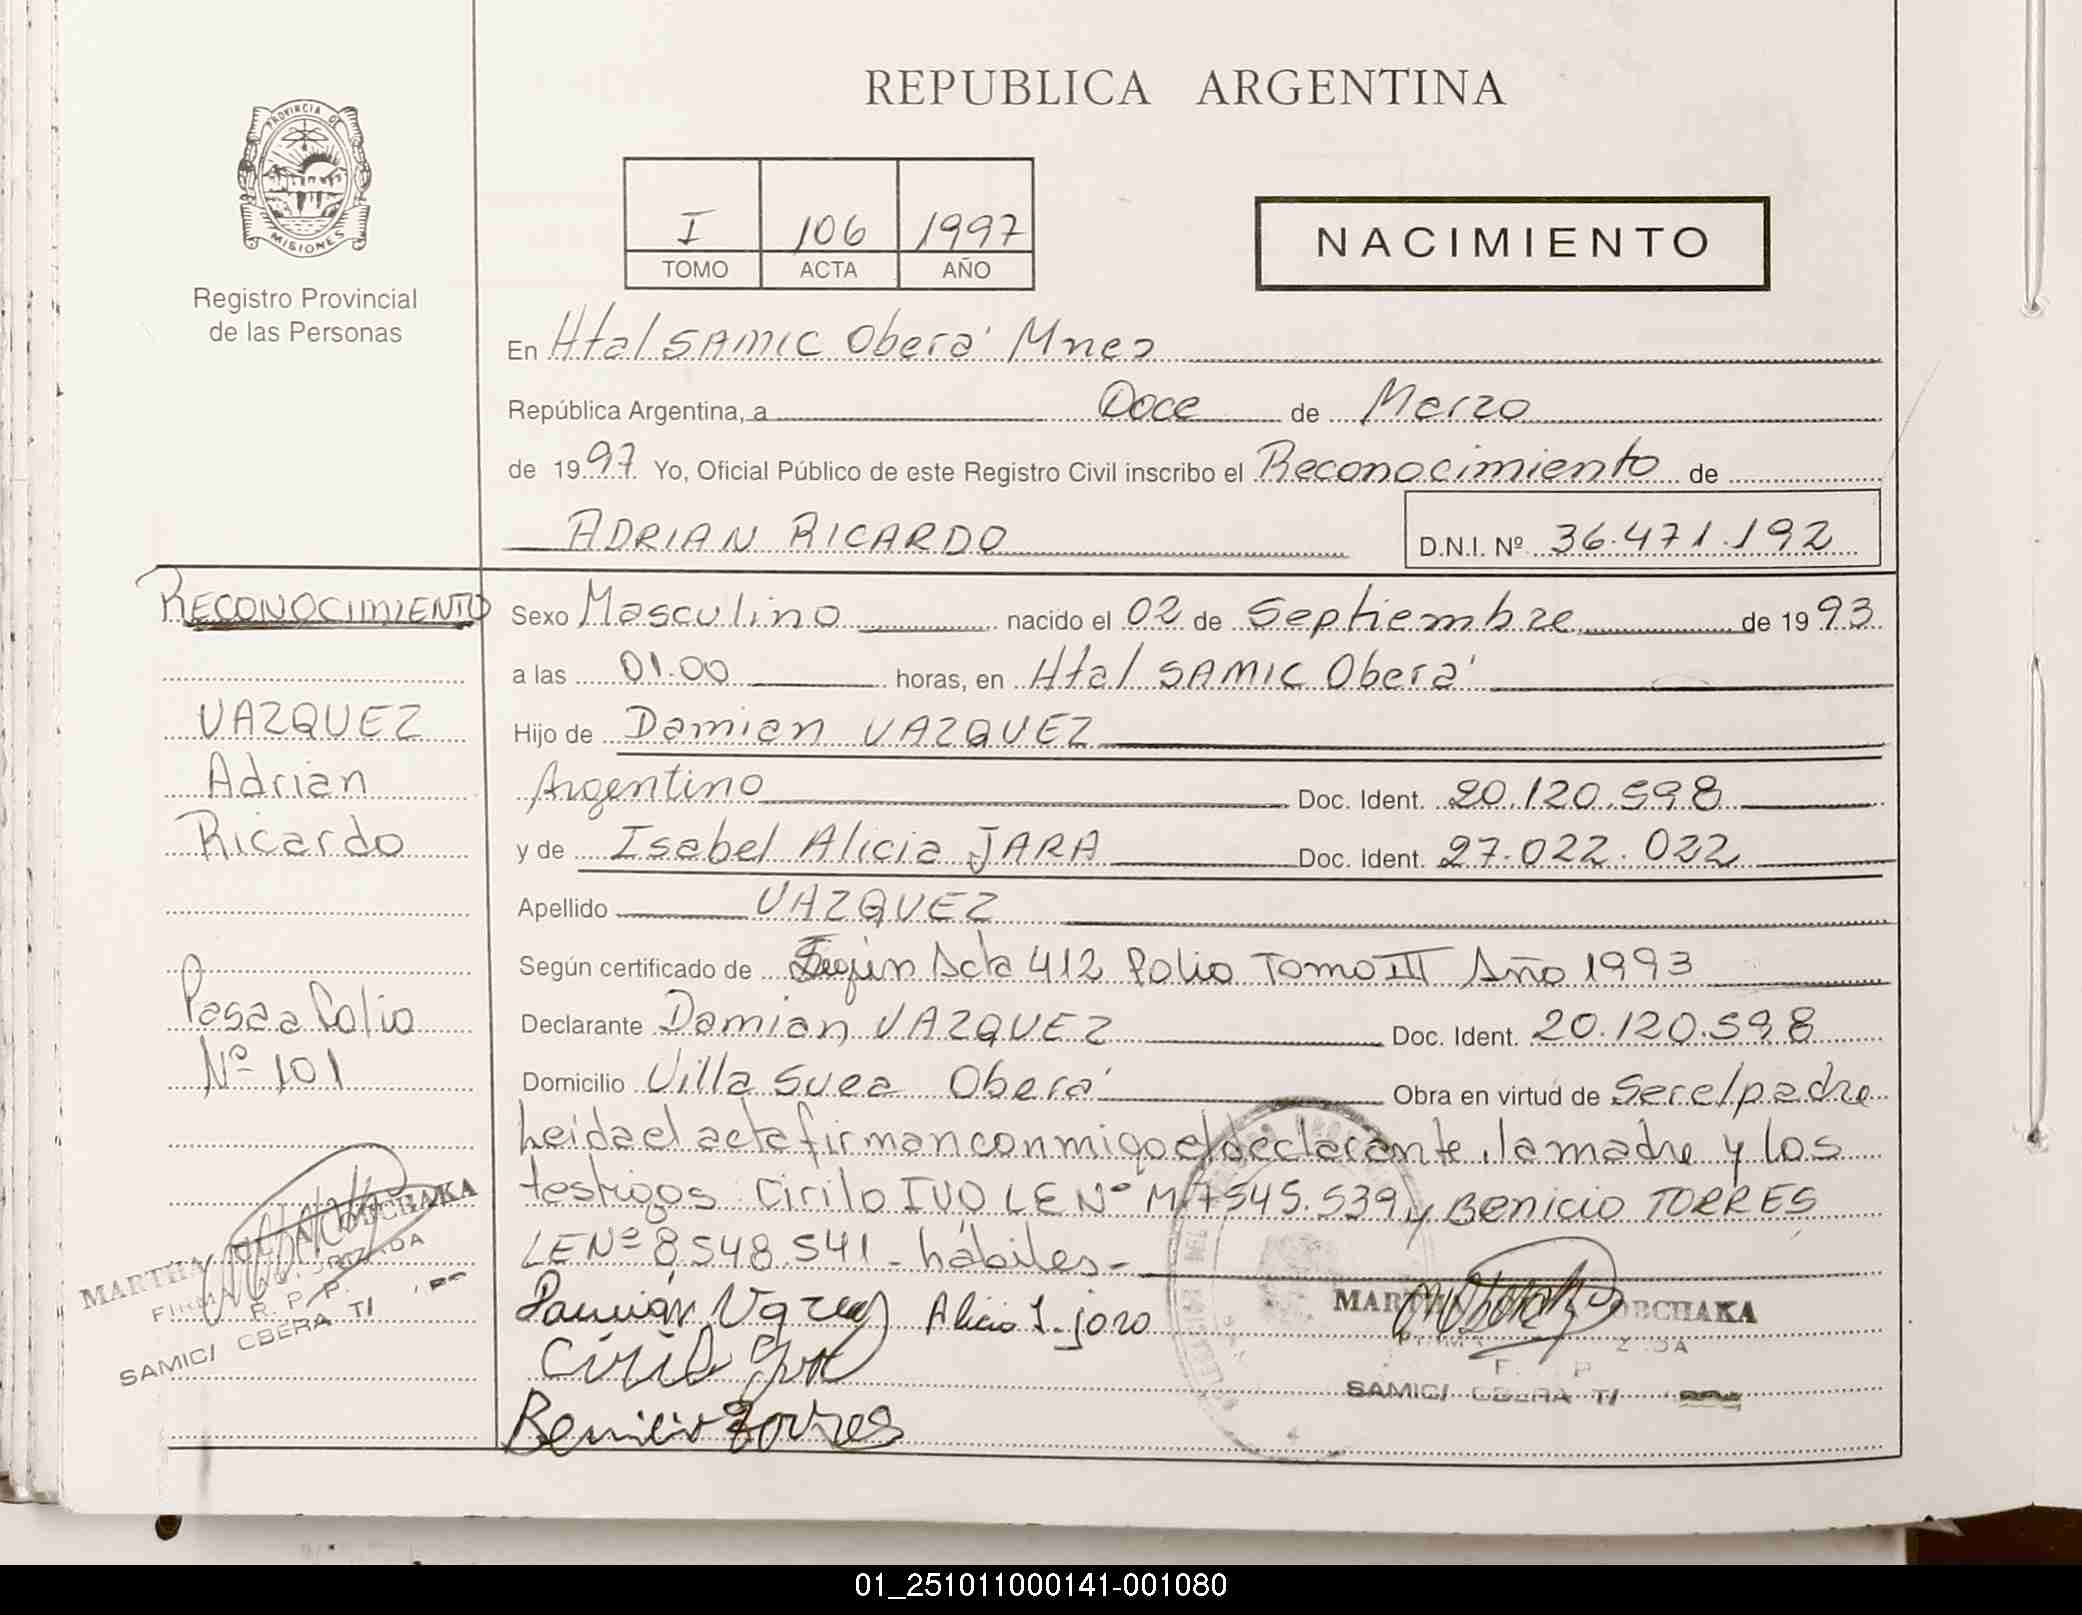 REPUBLICA ARGENTINA
PROVINCIA DE
MISIONES
Registro Provincial
de las Personas
I 106 1997
TOMO ACTA AÑO
NACIMIENTO
En Htal SAMIC Oberá Mnes
República Argentina, a Doce de Marzo
de 1997 Yo, Oficial Público de este Registro Civil inscribo el Reconocimiento de
ADRIAN RICARDO D.N.I. Nº 36.471.192
RECONOCIMIENTO
VAZQUEZ
Adrian
Ricardo
Pasa a folio
Nº 101
Sexo Masculino nacido el 02 de Septiembre de 1993
a las 01.00 horas, en Htal SAMIC Oberá
Hijo de Damian VAZQUEZ
Argentino Doc. Ident. 20.120.598
y de Isabel Alicia JARA Doc. Ident. 27.022.022
Apellido VAZQUEZ
Según certificado de Según Acta 412 folio Tomo III Año 1993
Declarante Damian VAZQUEZ Doc. Ident. 20.120.598
Domicilio Villa Suea Oberá Obra en virtud de Ser el padre
Leida el acta firman conmigo el declarante, la madre y los
testigos Cirilo IVO LE Nº M.7545.539 y Benicio TORRES
LE Nº 8.548.541 - hábiles -
Damián Vazquez Alicia I. jara
Cirilo Ivo
Benicio Torres
MARTHA OBCHAKA
FIRMA AUTORIZADA
R. P. P.
SAMIC/ OBERA
MARTHA OBCHAKA
SAMIC/ OBERA
01_251011000141-001080